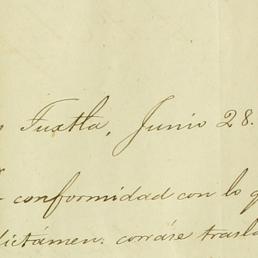 Tuxtla, Junio 28.
conformidad con lo
dictámen: corráse